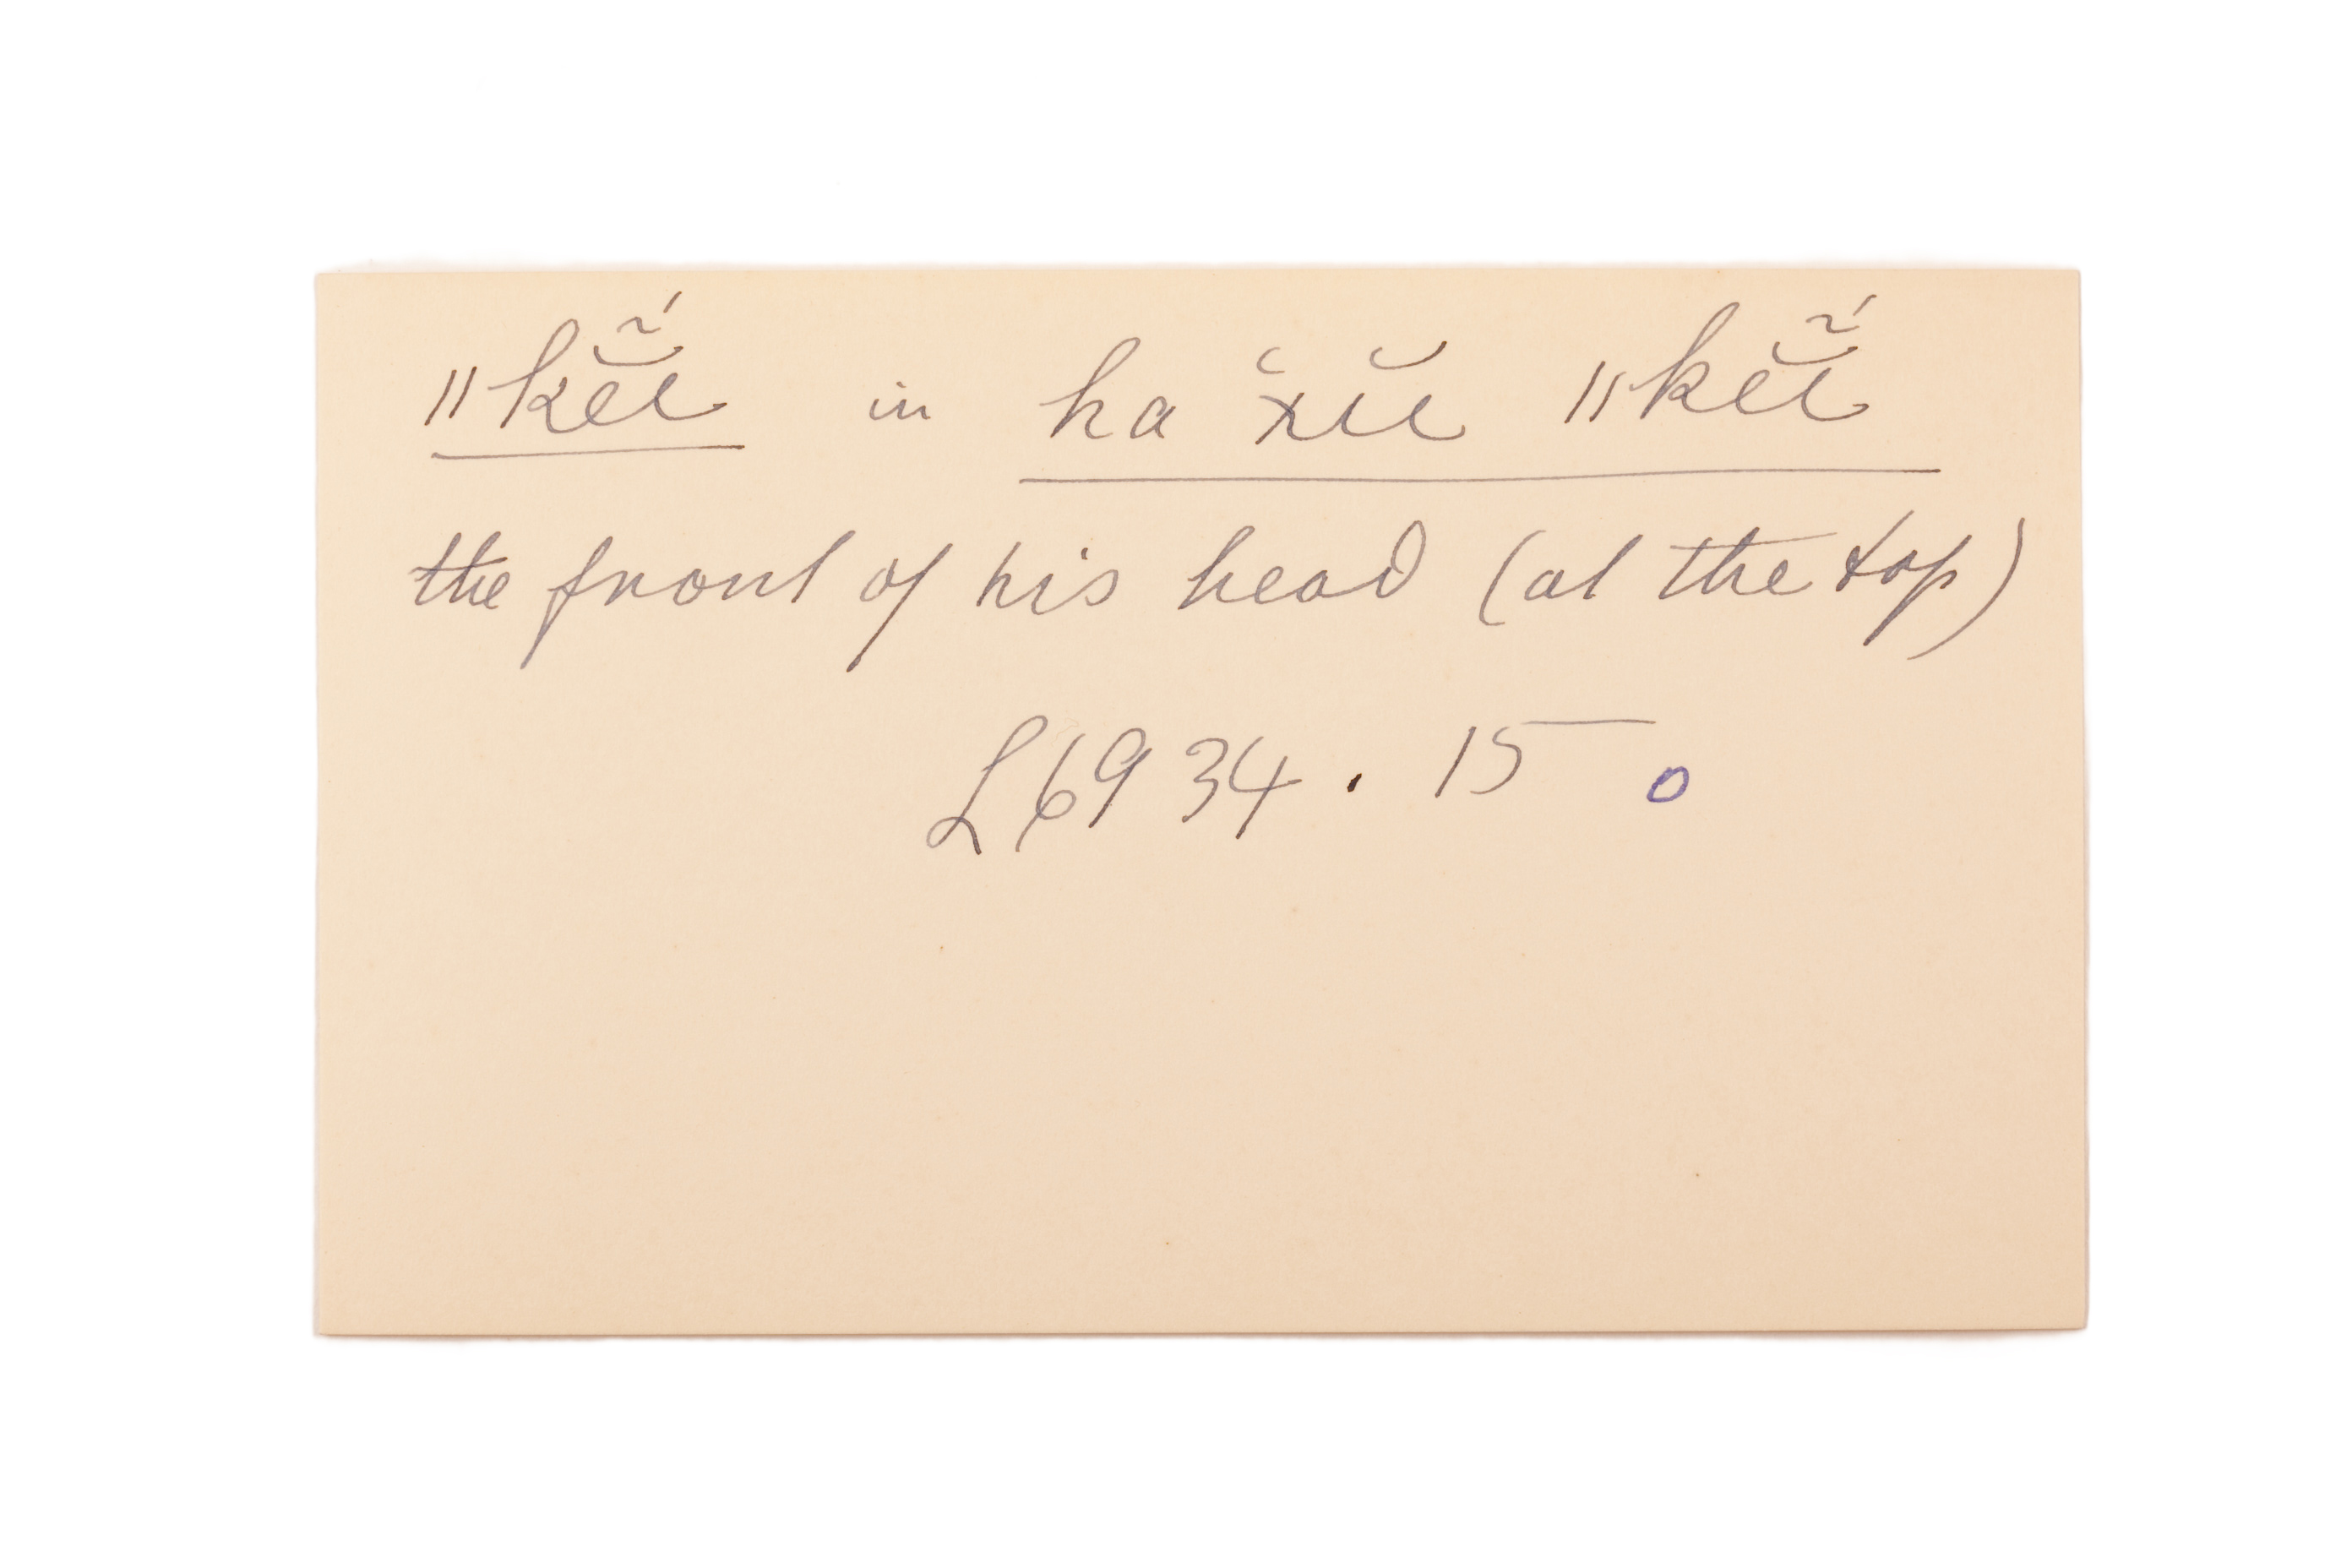 ǁkĕ̃́ĭ in ha xʿŭĭ ǁkĕ̃́ĭ
the front of his head (at the top)
L 6934. 15 o